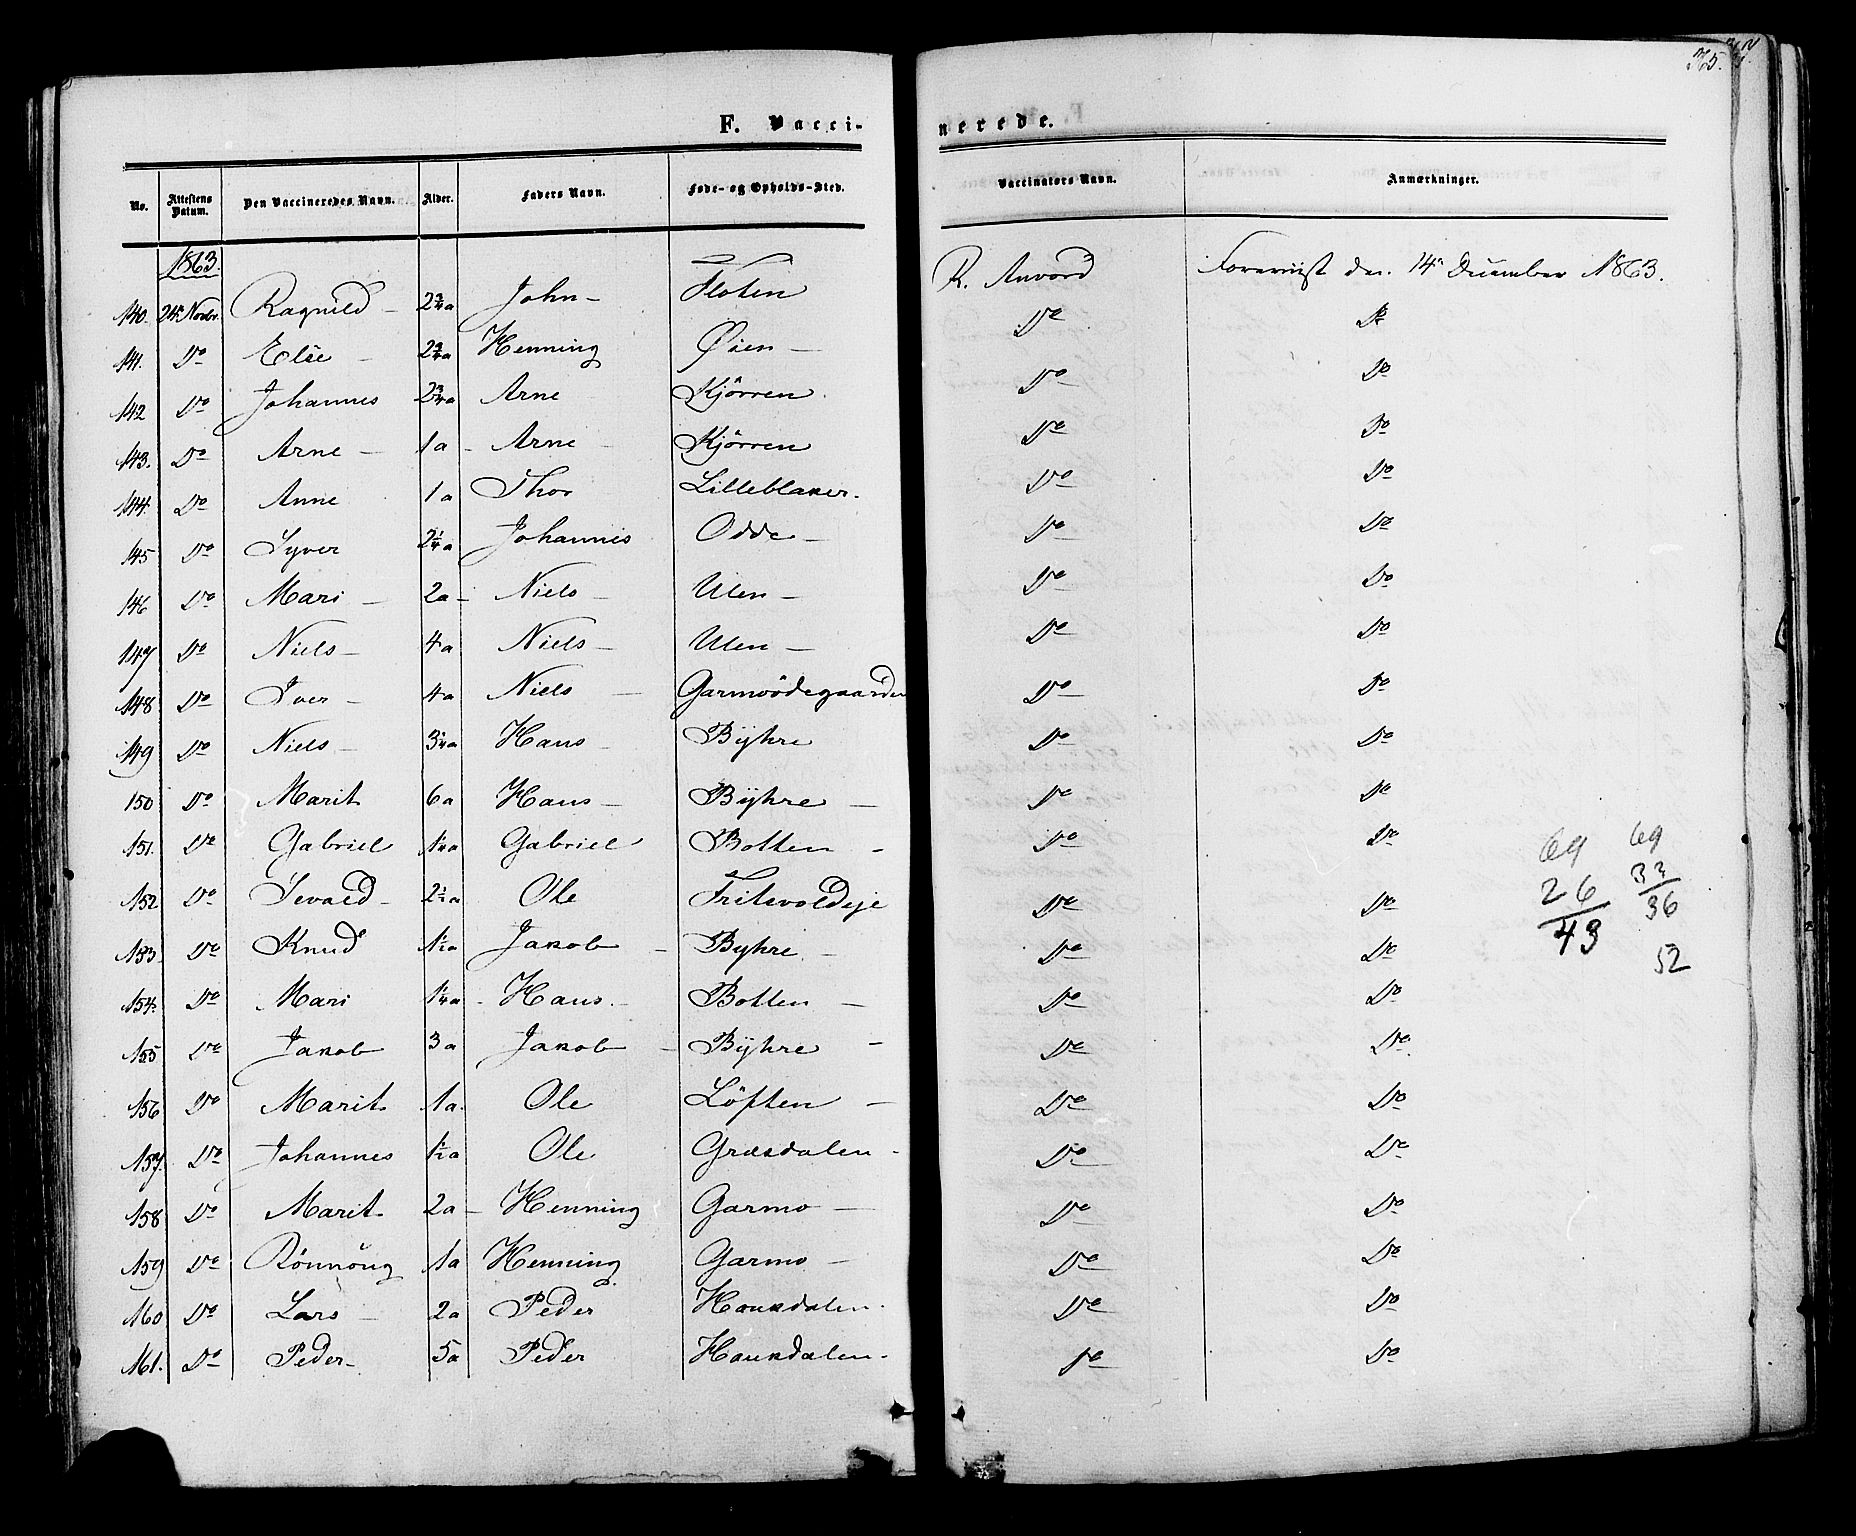 F. Vacci-
nerede.
No. Attestens Datum. Den Vaccineredes Navn. Alder. Faders Navn. Føde- og Opholds-Sted. Vaccinators Navn. Anmærkninger.
1863.
140. 24 Novbr. Ragnild - 2 3/4 a John - Floten R. Anvord Foreviist den 14 December 1863.
141. Do Else - 2 3/4 a Henning Øien - Do Do
142 Do Johannes 2 3/4 a Arne Kjörren. Do Do
143. Do Arne - 1 a - Arne - Kjörren Do Do
144. Do Anne 1 a Thor Lilleblaker. Do Do
145 Do Syver 2 1/4 a Johannes Odde - Do Do
146 Do Mari - 2 a - Niels - Ulen - Do Do
147 Do Niels - 4 a Niels - Ulen - Do Do
148 Do Iver - 4 a Niels - Garmoödegaarden Do Do
149 Do Niels - 3 1/4 a Hans - Byhre Do Do
150 Do Marit 6 a Hans - Byhre - Do Do
151. Do Gabriel 1 1/4 a Gabriel Botten - Do Do
152 Do Sevald - 2 1/2 a Ole Fritsvoldeje Do Do
153. Do Knud 1 1/2 a Jakob - Byhre. - Do Do
154. Do Mari 1 1/4 a - Hans. - Botten - Do Do
155 Do Jakob 3 a Jakob - Byhre - Do Do.
156 Do Marit 1 a. Ole Löften - Do Do
157. Do Johannes 1/2 a Ole Græsdalen - Do Do
158 Do Marit 2 a - Henning Garmo - Do Do
159 Do Rönnöug 1 a Henning Garmo - Do Do
160 Do Lars - 2 a Peder Haukdalen. Do Do
161. Do Peder - 5 a Peder Haukdalen - Do Do
69 69
26 33
43 36
52